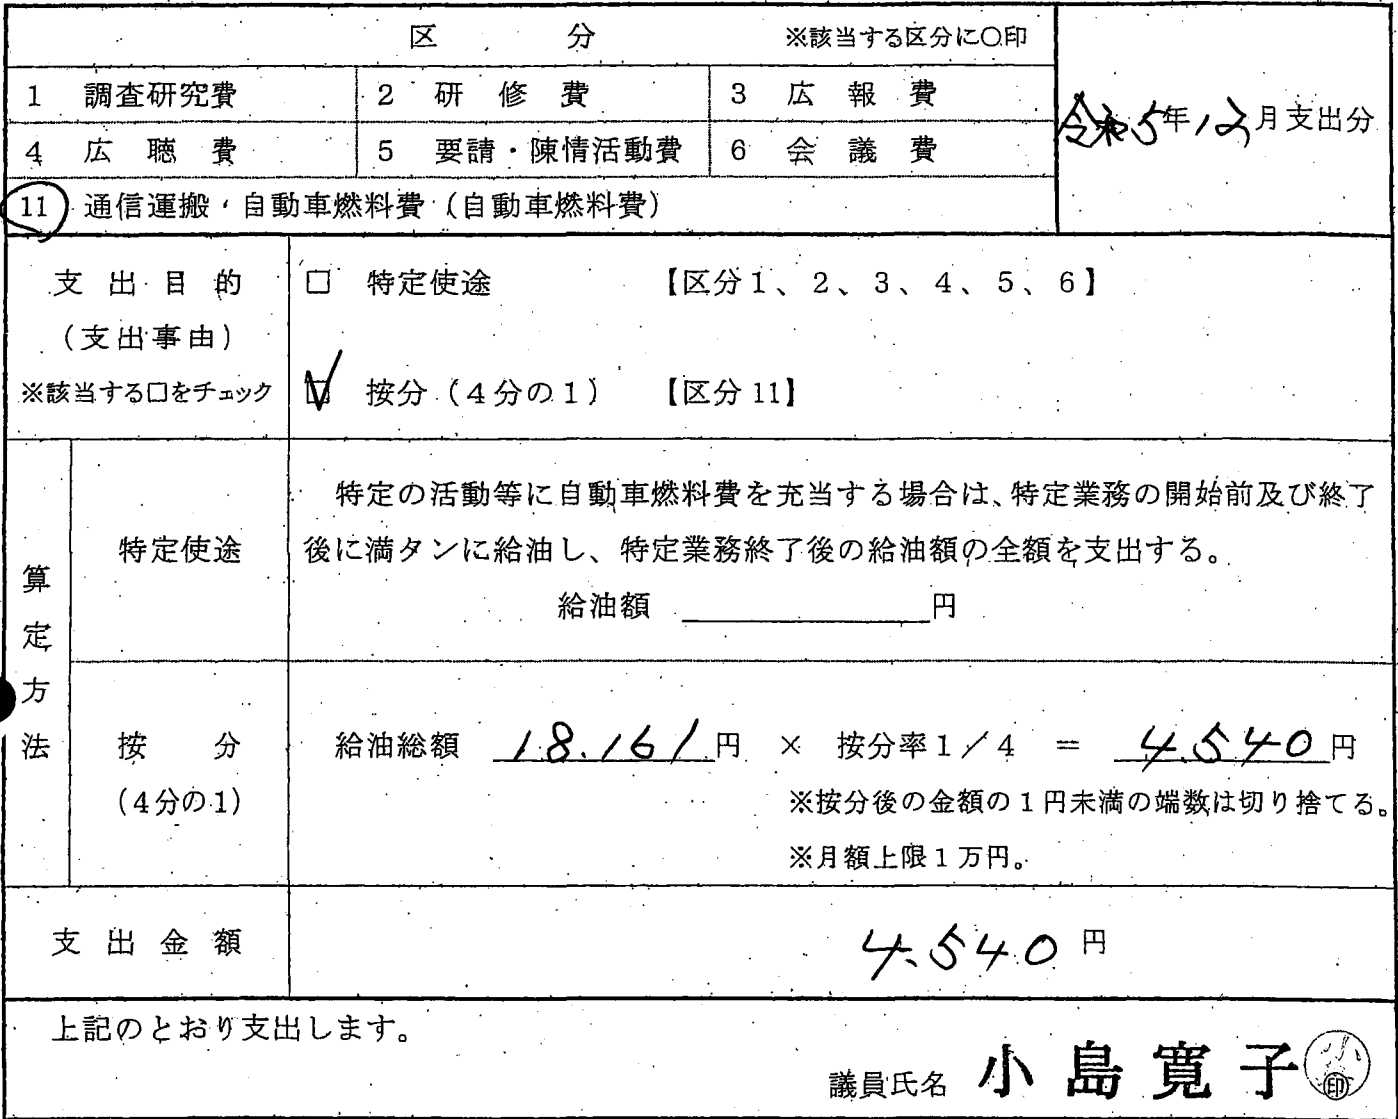 区　分　※該当する区分に○印
1 調査研究費　2 研修費　3 広報費
令和5年12月支出分
4 広聴費　5 要請・陳情活動費　6 会議費
11 通信運搬・自動車燃料費（自動車燃料費）
支出目的
（支出事由）
※該当する□をチェック
□ 特定使途　【区分1、2、3、4、5、6】
☑ 按分（4分の1）　【区分11】
算定方法
特定使途
特定の活動等に自動車燃料費を充当する場合は、特定業務の開始前及び終了
後に満タンに給油し、特定業務終了後の給油額の全額を支出する。
給油額　円
按分
（4分の1）
給油総額 18.161円 × 按分率1／4 ＝ 4.540円
※按分後の金額の1円未満の端数は切り捨てる。
※月額上限1万円。
支出金額　4.540円
上記のとおり支出します。
議員氏名 小島寛子 印